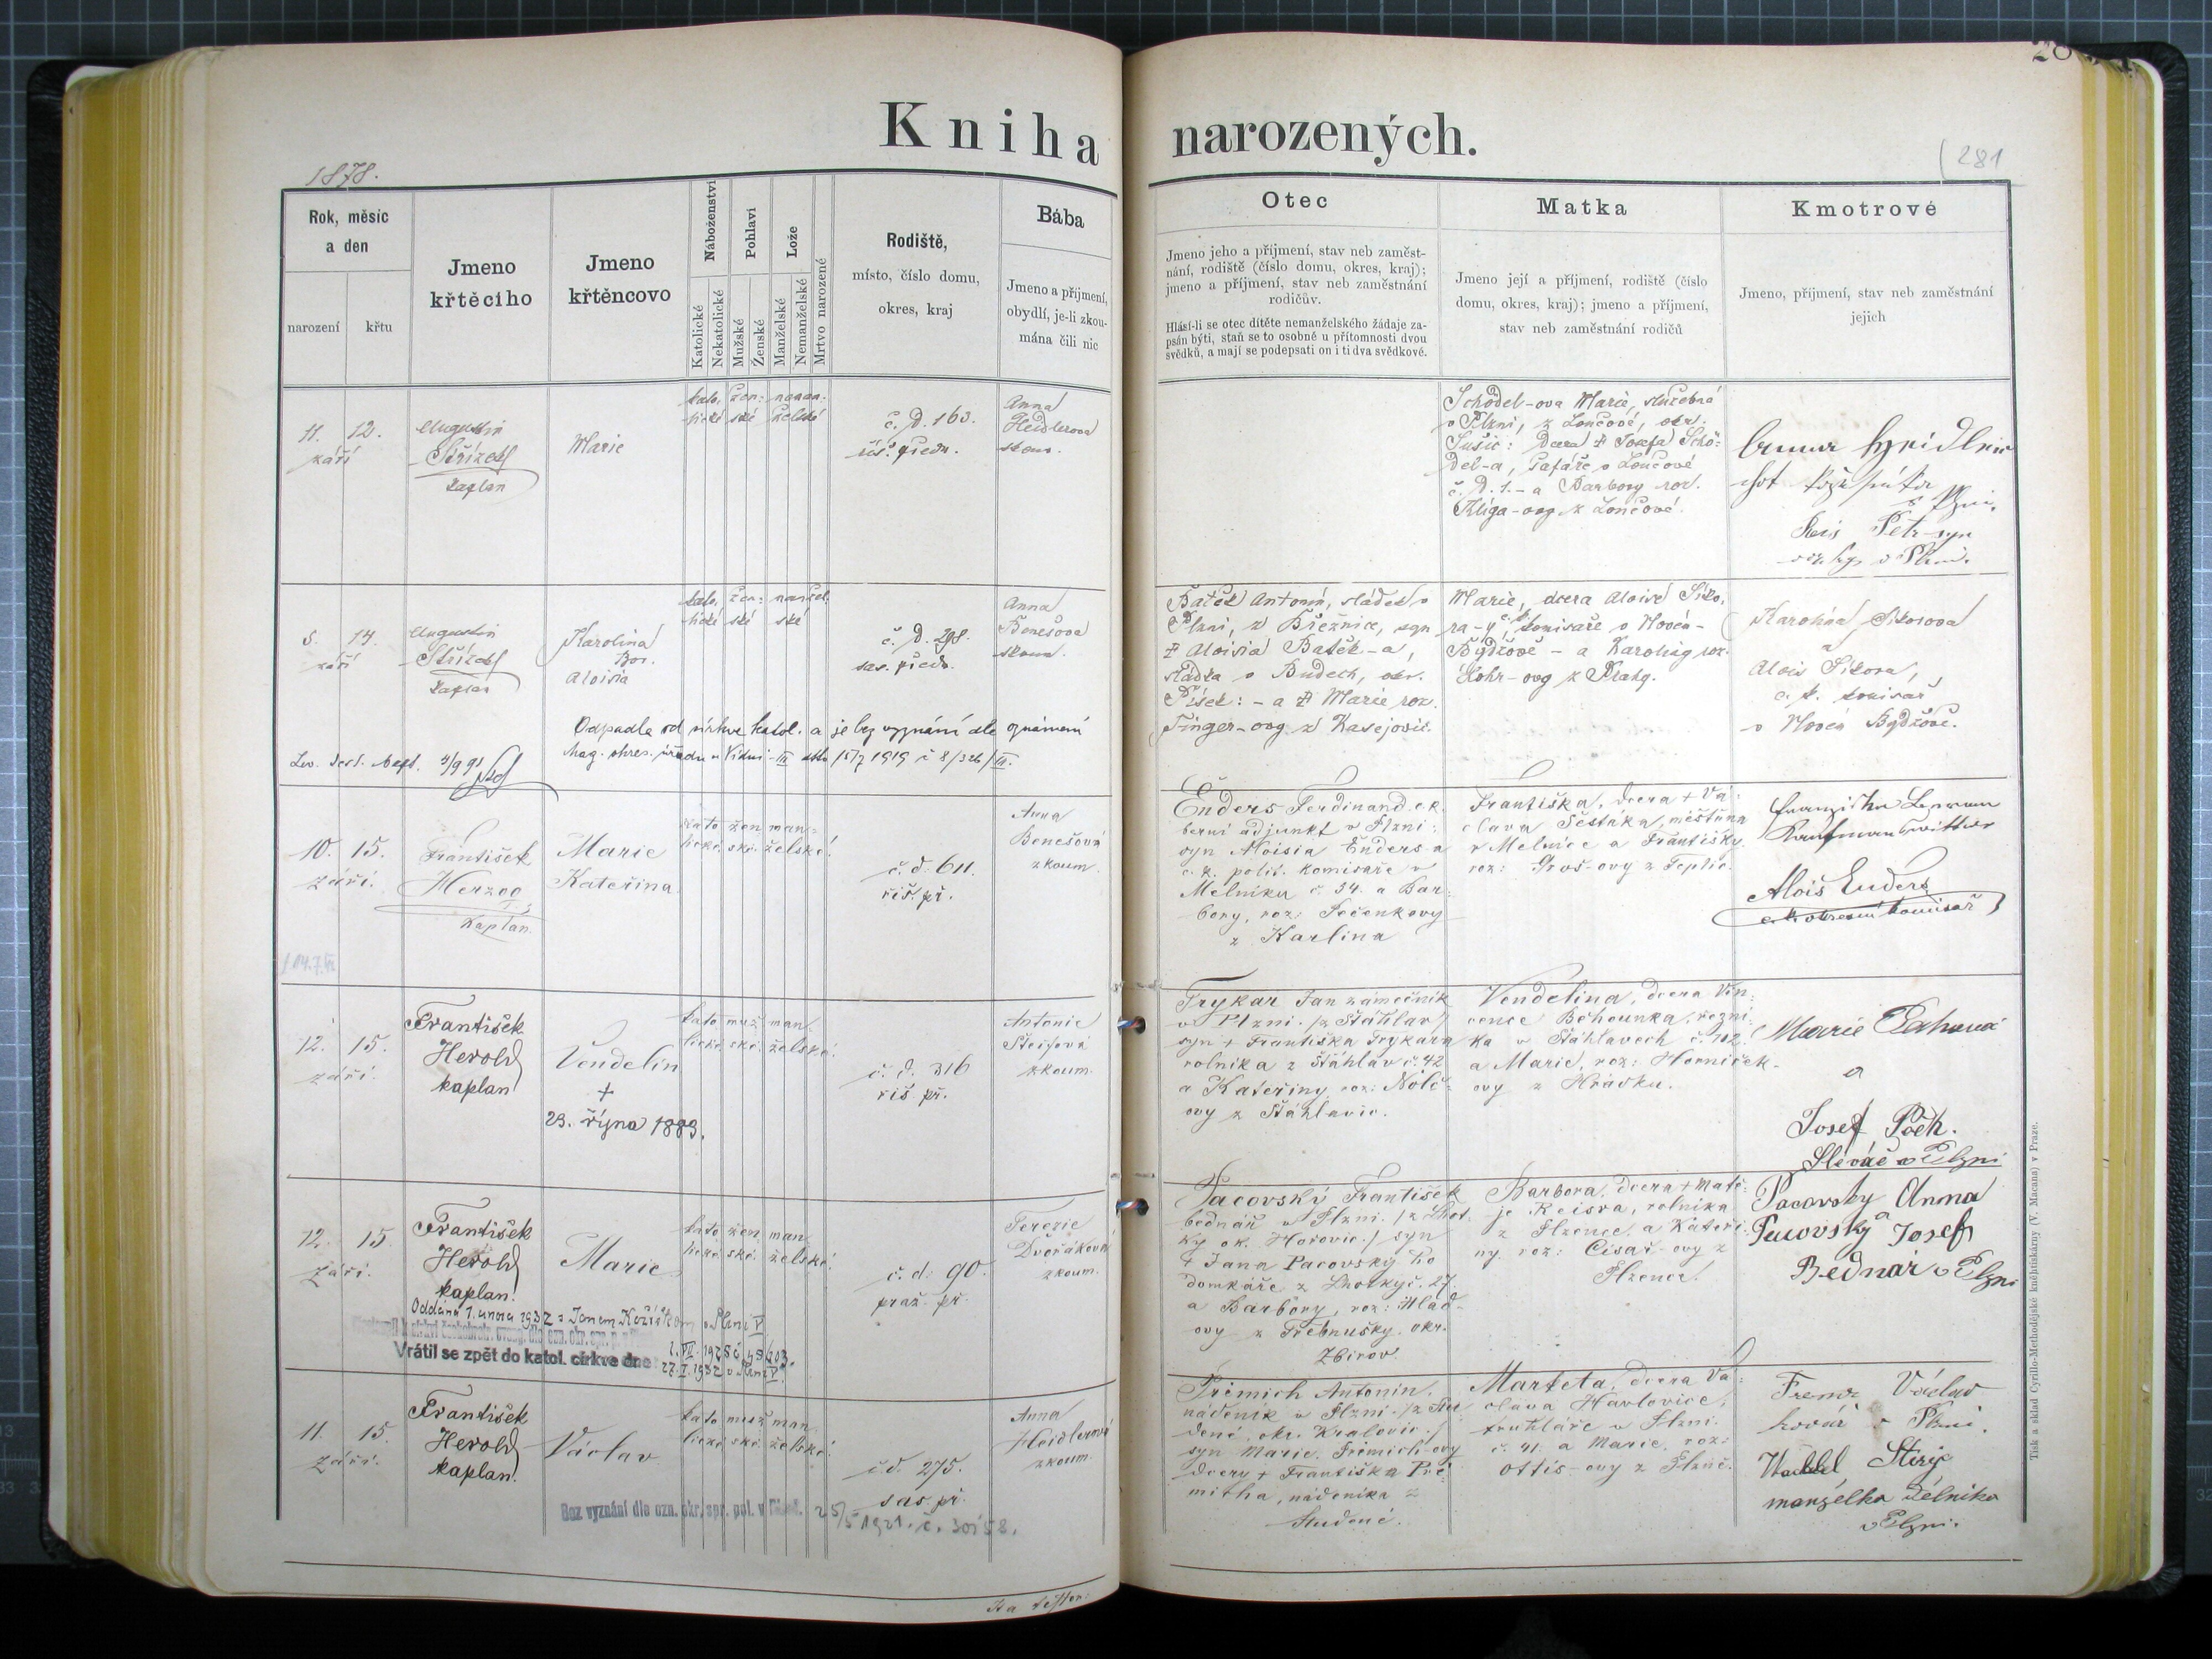 Kniha narozených.
1878.
28
281
Rok, měsíc
a den
narození
křtu
Jmeno
křtěcího
Jmeno
křtěncovo
Náboženství
Katolické
Nekatolické
Pohlaví
Mužské
Ženské
Lože
Manželské
Nemanželské
Mrtvo narozené
Rodiště,
místo, číslo domu,
okres, kraj
Bába
Jmeno a příjmení,
obydlí, je-li zkou-
mána čili nic
Otec
Jmeno jeho a příjmení, stav neb zaměst-
nání, rodiště (číslo domu, okres, kraj);
jmeno a příjmení, stav neb zaměstnání
rodičův.
Hlásí-li se otec dítěte nemanželského žádaje za-
psán býti, staň se to osobně u přítomnosti dvou
svědků, a mají se podepsati on i ti dva svědkové.
Matka
Jmeno její a příjmení, rodiště (číslo
domu, okres, kraj); jmeno a příjmení,
stav neb zaměstnání rodičů
Kmotrové
Jmeno, příjmení, stav neb zaměstnání
jejich
11. 12.
září
Augustin
Střízek
kaplan
Marie
kato- žen- neman-
lické ské želské
č. d. 163.
říš. předm.
Anna
Heidlerova
zkoum.
Schödel-ova Marie, služebná
v Plzni, z Lončové, okr.
Sušic: dcera + Josefa Schö-
del-a, šafáře v Lončové
č. d. 1. - a Barbory roz.
Klíga-ovy z Lončové.
Petr syn
8. 14.
září
Augustin
Střízek
kaplan
Karolina
Bor.
Aloisia
kato- žen- manžel-
lické ské ské
č. d. 298.
sas. předm.
Anna
Benešova
zkoum.
Odpadla od církve katol. a je bez vyznání dle oznámení
Mag. okres. úřadu u Vídni - III dtto 15/7 1919 č 8/326/III.
Batěk Antonín, sládek v
Plzni, z Březnice, syn
+ Aloisia Batěk-a,
sládka v Budech, okr.
Písek: - a + Marie roz.
Finger-ovy z Kasejovic.
Marie, dcera Aloise Síko-
ra-y c. k. komisaře v Novém-
Bydžově - a Karoliny roz.
Lohr-ovy z Prahy.
Karolina Sikorova
a
Alois Sikora,
c. k. komisař
v Novém Bydžově.
10. 15.
září.
František
Herzog
kaplan.
Marie
Kateřina
kato- žen- man-
lické. ské. želské.
č. d. 611.
říš. př.
Anna
Benešová
zkoum.
Enders Ferdinand c. k.
berní adjunkt v Plzni:
syn Aloisia Enders a
c. k. polit. komisaře v
Mělníku č. 34. a Bar-
bory, roz: Pečenkovy
z Karlína
Františka, dcera + Vá-
clava Šesťáka, měšťana
v Mělníce a Františky
roz: Gros-ovy z Teplic.
Alois Enders
c. k. okresní komisař
12. 15.
září.
František
Herold
kaplan
Vendelin
+
23. října 1883.
kato- muž- man-
lické. ské. želské.
č. d. 316
říš. př.
Antonie
Steifová
zkoum.
Trykar Jan zámečník
v Plzni. /z Štáhlav/
syn + Františka Trykara
rolníka z Štáhlav č. 42
a Kateřiny roz: Nolč-
ovy z Štáhlavic.
Vendelina, dcera Vin-
cence Běhounka, řezní-
ka v Štáhlavech č. 102
a Marie, roz: Horníček-
ovy z Hrádku.
Marie
a
Josef Pěch.
Slévač v Plzni
12. 15.
září.
František
Herold
kaplan.
Marie
kato- žen- man-
lické. ské. želské.
č. d. 90.
praž. př.
Terezie
Dvořáková
zkoum.
Oddána 1. února 1932 s Janem v Plzni V
Vrátil se zpět do katol. církve dne
27. I. 1932 v Plzni V.
Pacovský František
bednář v Plzni. /z Lhot-
ky ok. Hořovic./ syn
+ Jana Pacovský ho
domkáře z Lhotky č. 27.
a Barbory, roz: Hlad-
ovy z Třebnušky okr.
Zbirov.
Barbora, dcera + Matě-
je Reisra, rolníka
z Plzence, a Kateři-
ny roz: Císař-ovy z
Plzence.
Pacovsky Anna
a
Pacovsky Josef
Bednář v Plzni
11. 15.
září.
František
Herold
kaplan.
Václav
kato- muž- man-
lické. ské. želské.
č. d. 275.
sas. př.
Anna
Heidlerová
zkoum.
Bez vyznání dle ozn. okr. spr. pol. v Plzni. 25/5 1921. č. 30158.
Přemich Antonín,
nádeník v Plzni. /z Stu-
dené, okr. Kralovic./
syn Marie Přemich-ovy
dcery + Františka Pře-
micha, nádeníka z
Studené.
Markéta, dcera Vá-
clava Havlovice,
truhláře v Plzni.
č. 41. a Marie, roz:
Ottis-ovy z Plzně.
Václav
kovář v Plzni
manželka dělníka
v Plzni.
Tisk a sklad Cyrillo-Methodějské knihtiskárny (V. Macana) v Praze.